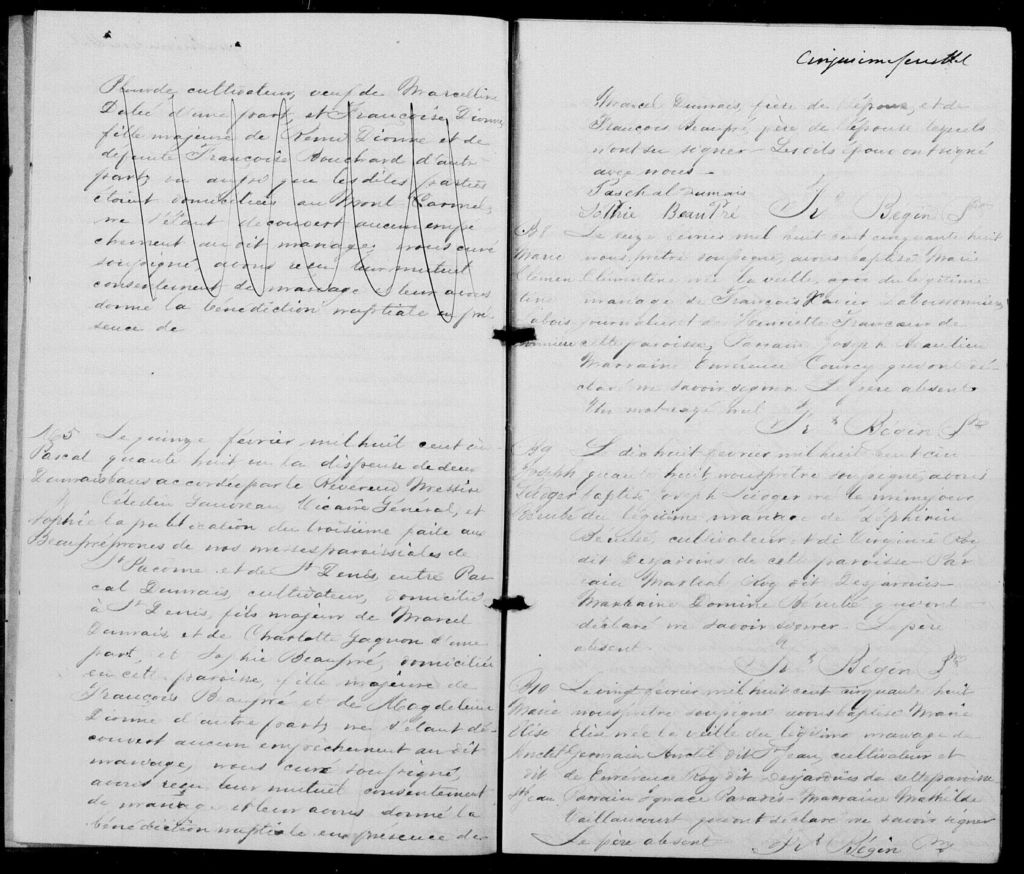 Plourde, cultivateur, veuf de Marcelline
Dubé d'une part, et Françoise Dionne,
fille majeure de Rémi Dionne et de
défunte Françoise Bouchard d'autre
part, vu aussi que les dites parties
étaient domiciliées au Mont Carmel,
ne s'étant découvert aucun empê
chement au dit mariage, nous curé
soussigné, avons reçu leur mutuel
consentement de mariage et leur avons
donné la bénédiction nuptiale en pré
sence de
M5 Le quinze février mil huit cent cin
Pascal quante huit vu la dispense de deux
Dumais bans accordée par le Révérend Messire
& Célestin Gauvreau, Vicaire Général, et
Sophie la publication du troisième faite aux
Beaupré prônes de nos messes paroissiales de
St Pacome et de St Denis, entre Pas
cal Dumais, cultivateur, domicilié
à St Denis, fils majeur de Marcel
Dumais et de Charlotte Gagnon d'une
part, et Sophie Beaupré, domiciliée
en cette paroisse, fille majeure de
François Beaupré et de Magdeleine
Dionne d'autre part, ne s'étant dé
couvert aucun empêchement au dit
mariage, nous curé soussigné,
avons reçu leur mutuel consentement
de mariage et leur avons donné la
bénédiction nuptiale en présence de
Cinquième feuillet
Marcel Dumais, père de l'époux, et de
François Beaupré, père de l'épouse lesquels
n'ont su signer. Les dits époux ont signé
avec nous.
Paschal Dumais
Sophie BeauPré Frs Begin Ptre
B8 Le seize février mil huit cent cinquante huit
Marie nous prêtre soussigné, avons baptisé Marie
Clémen Clémentine née la veille du légitime
tine mariage de François Xavier Laboissonnière,
Labois journalier et de Henriette Francoeur de
sonnière cette paroisse, Parrain Joseph Beaulieu
Marraine Emérence Courcy qui ont dé
claré ne savoir signer. Le père absent.
Un mot rayé nul Frs Begin Ptre
B9 Le dix huit février mil huit cent cin
Joseph quante huit, nous prêtre soussigné, avons
baptisé Joseph né le même jour
Bérubé du légitime mariage de Zéphirin
Bérubé, cultivateur et de Virginie Roy
dit Desjardins de cette paroisse. Par
rain Martial Roy dit Desjardins
Marraine Bérubé qui ont
déclaré ne savoir signer. Le père
absent.
Frs Begin Ptre
B10 Le vingt février mil huit cent cinquante huit
Marie nous prêtre soussigné avons baptisé Marie
Elise Elise née la veille du légitime mariage de
Anctil Germain Anctil dit St Jean, cultivateur et
dit de Emérence Roy dit Desjardins de cette paroisse
St Jean Parrain Ignace Paradis. Marraine Mathilde
Vaillancourt qui ont déclaré ne savoir signer
Le père absent Frs Bégin Ptre